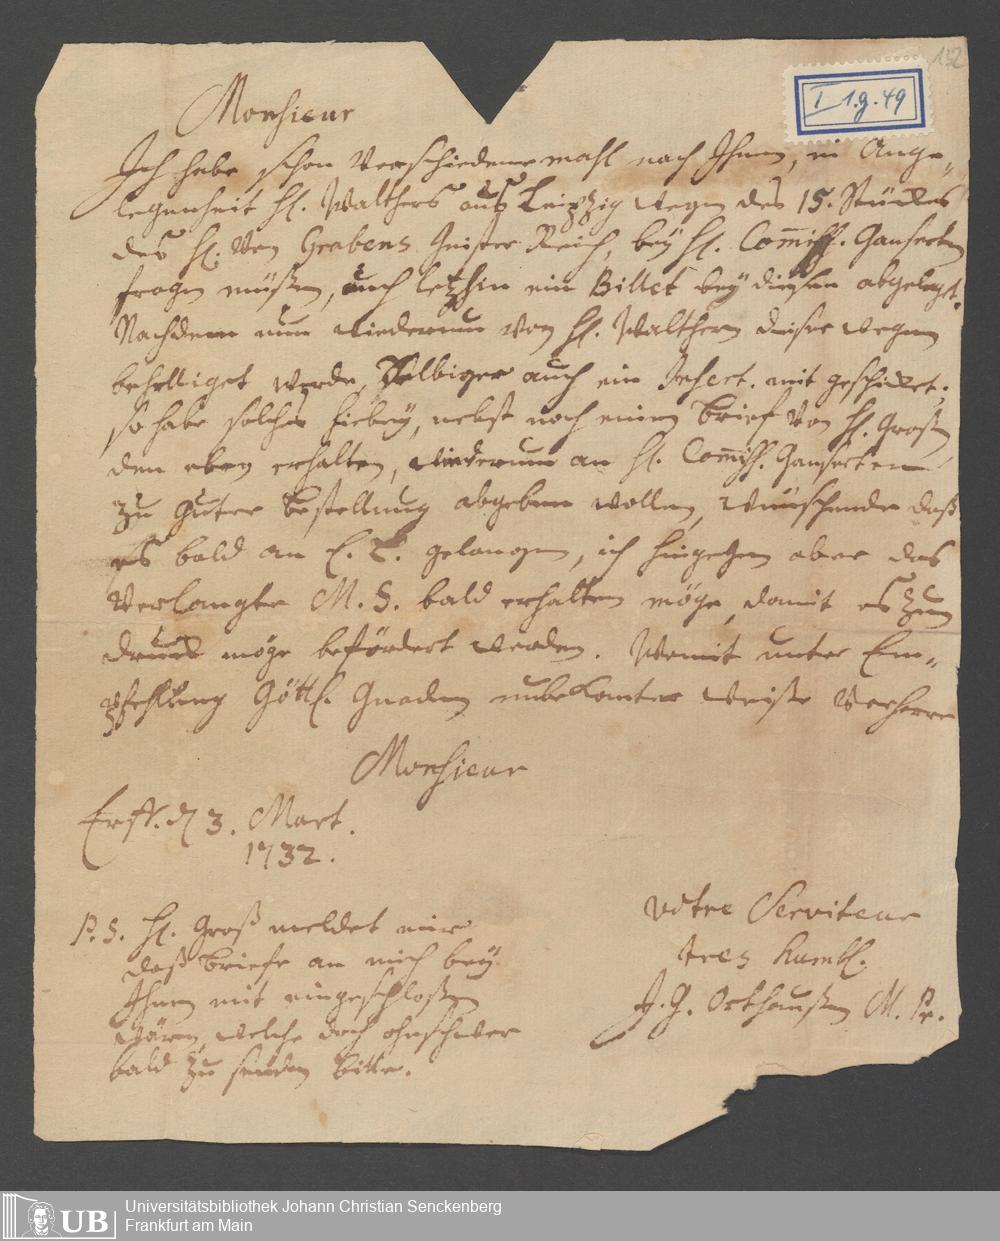 132
I 1.g.49
Monsieur
Ich habe schon verschiedene mahl nach Ihnen, in Ange-
legenheit H. Walthers aus Leipzig wegen des 15. Stückes
des H. von Grabens Geister Reich, bey H. Commiss. Ganserten
fragen müßen, auch letzhin ein Billet bey diesen abgelegt.
Nachdem nun wiederum von H. Walthern dieserwegen
behelliget werde, Selbiger auch ein Insert. mit geschicket;
so habe solches hiebey, nebst noch einen Brief von H. Groß
den eben erhalten, wiederum an H. Commiss. Ganserten
zu guter Bestellung abgeben wollen, wünschende daß
es bald an E. E. gelangen, ich hingegen aber das
verlangte M. S. bald erhalten möge, damit es zum
druck möge befördert werden. Womit unter Em-
pfehlung Göttl. Gnaden unbekanter weise verharre
Monsieur
Erff. d 3. Mart.
1732.
votre Serviteur
tres humbl.
J. G. Orthaußen M. Pr.
P. S. H. Groß meldet mir
daß Briefe an mich bey
Ihnen mit eingeschloßen
wären, welche doch ohnschwer
bald zu senden bitte.
UB
Universitätsbibliothek Johann Christian Senckenberg
Frankfurt am Main